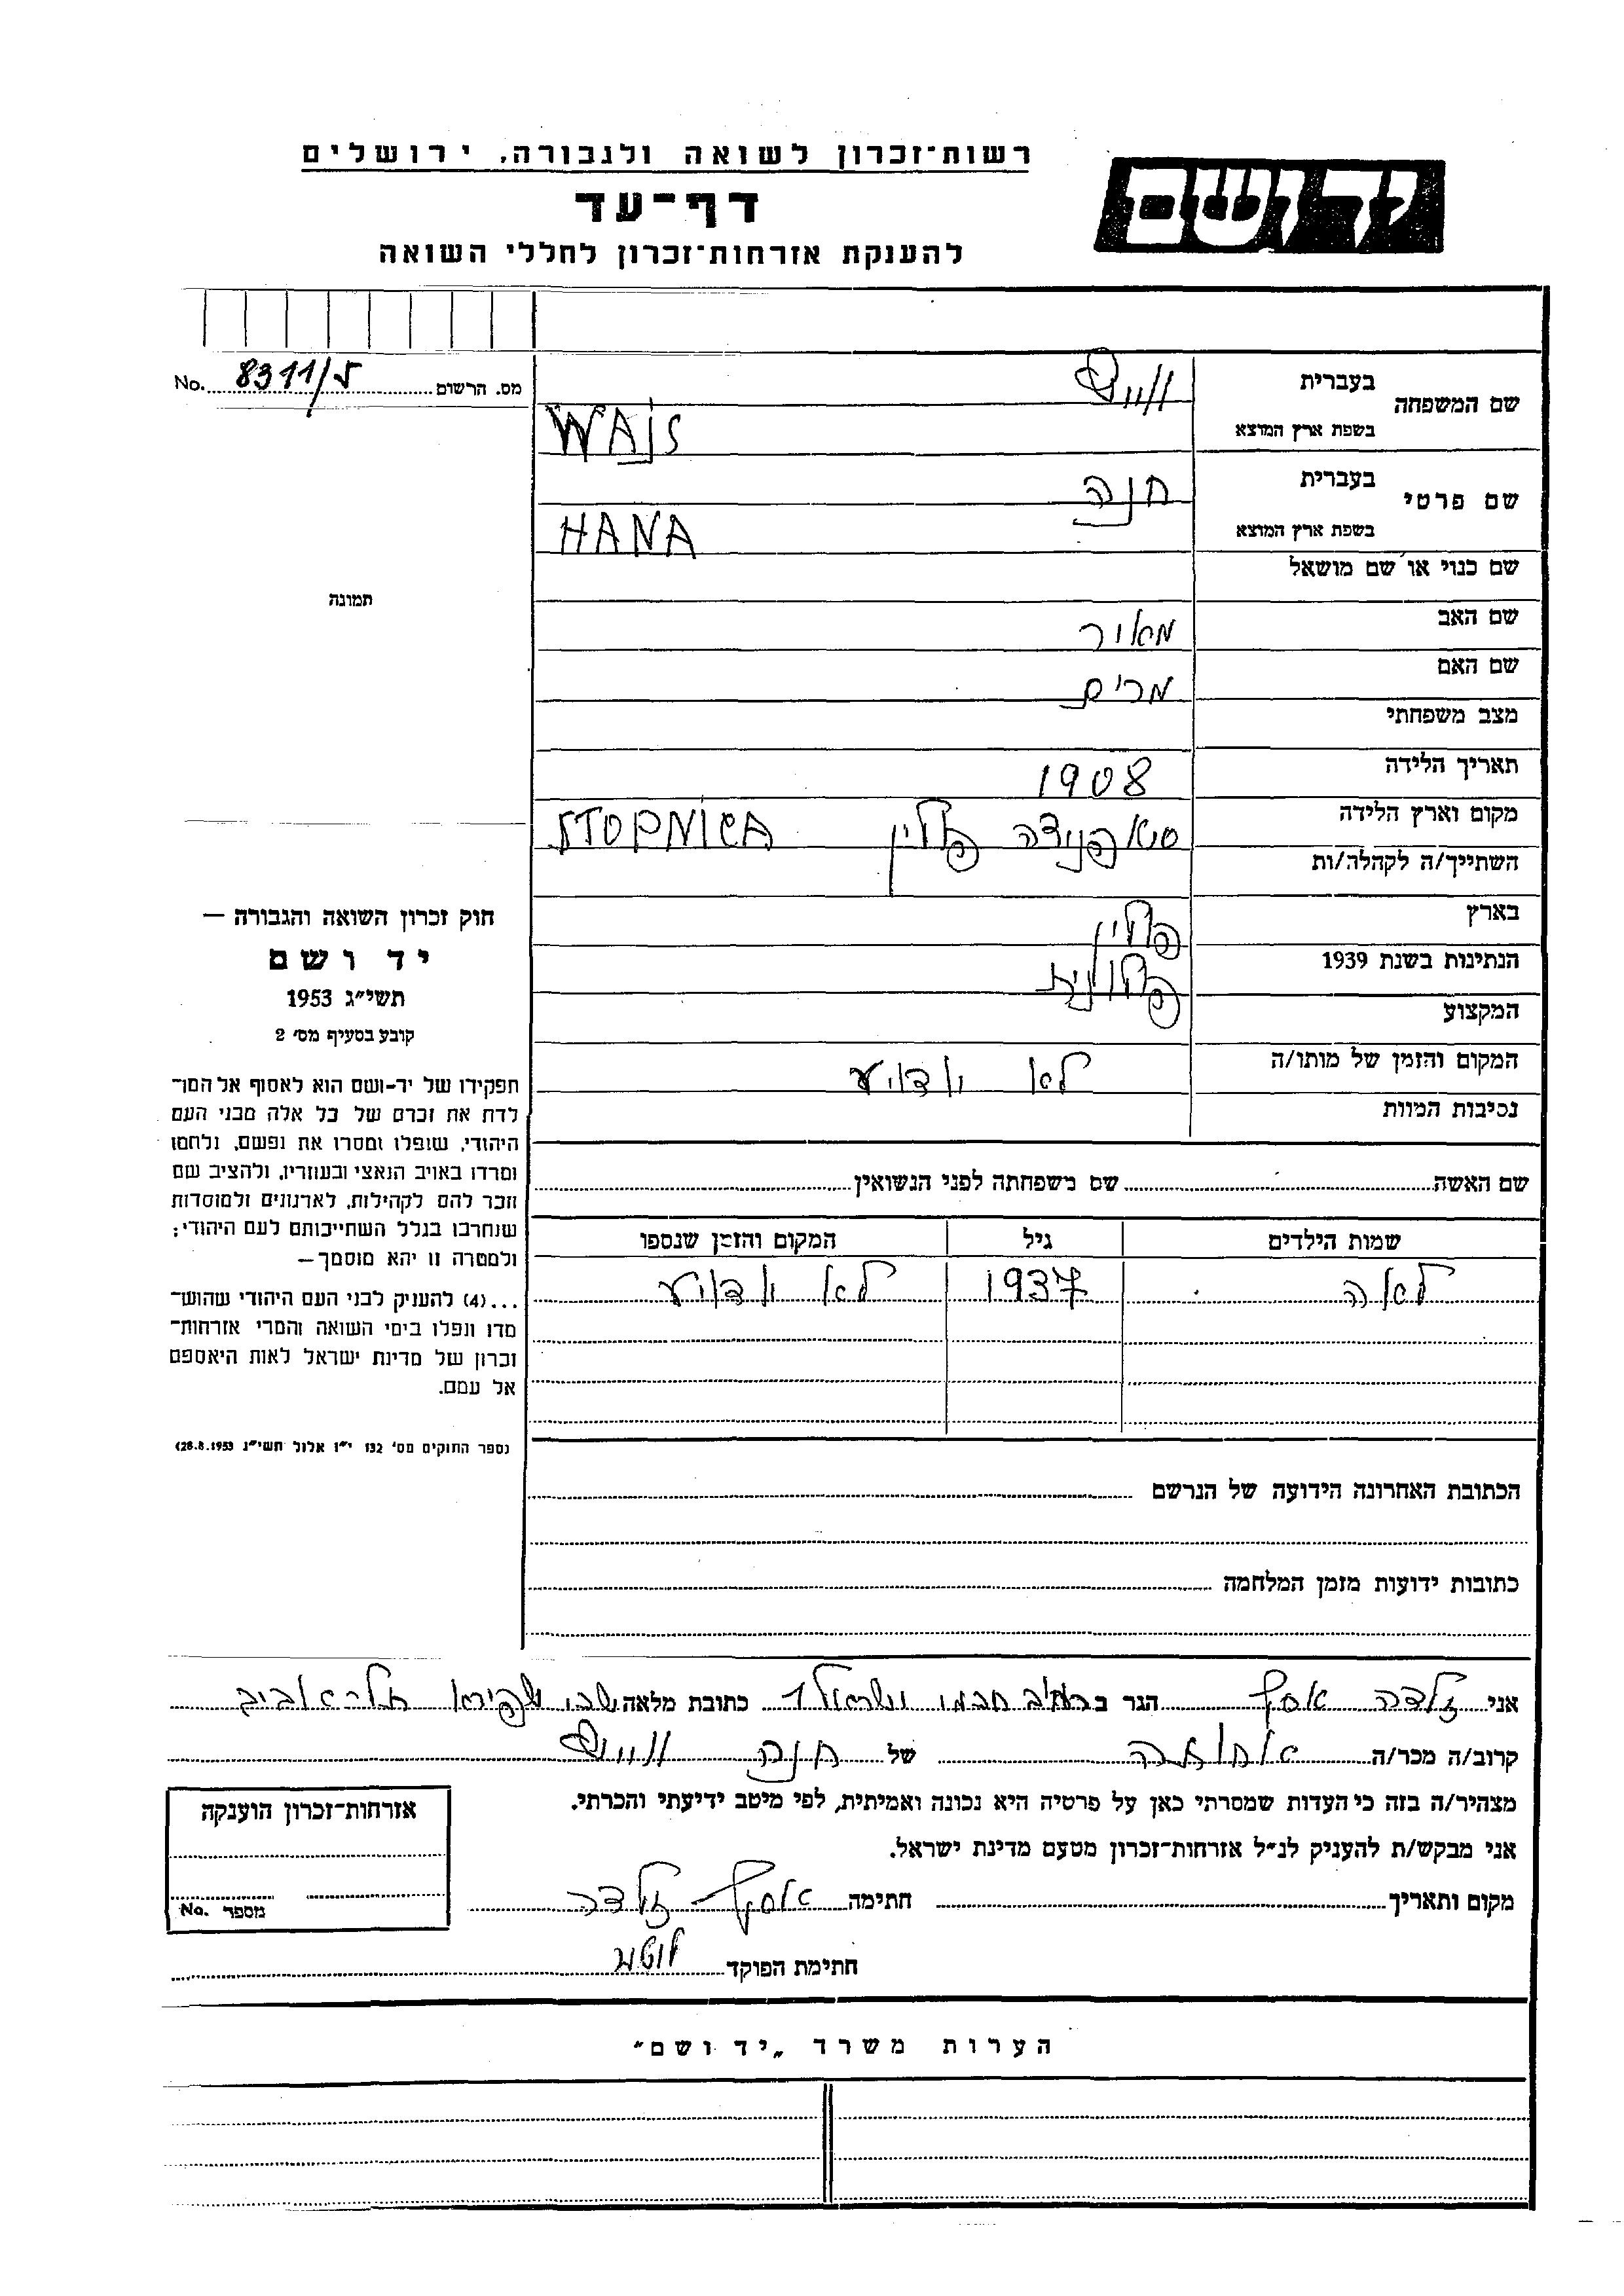 רשות־זכרון לשואה ולגבורה, ירושלים
יד ושם
דף־עד
להענקת אזרחות־זכרון לחללי השואה
מס. הרשום 8311/ל No.
שם המשפחה
בעברית
ווייס
בשפת ארץ המוצא
WAjS
שם פרטי
בעברית
חנה
בשפת ארץ המוצא
HANA
שם כנוי או שם מושאל
תמונה
שם האב מאיר
שם האם מרים
מצב משפחתי
תאריך הלידה 1908
מקום וארץ הלידה סטאפניצה פולין STOPNiCA
השתייך/ה לקהלה/ות
בארץ פולין
הנתינות בשנת 1939 פולנית
המקצוע
המקום והזמן של מותו/ה לא ידוע
נסיבות המוות
חוק זכרון השואה והגבורה —
יד ושם
תשי״ג 1953
קובע בסעיף מס׳ 2
תפקידו של יד-ושם הוא לאסוף אל המו־
לדת את זכרם של כל אלה מבני העם
היהודי, שנפלו ומסרו את נפשם, נלחמו
ומרדו באויב הנאצי ובעוזריו, ולהציב שם
וזכר להם לקהילות, לארגונים ולמוסדות
שנחרבו בגלל השתייכותם לעם היהודי;
ולמטרה זו יהא מוסמך —
...(4) להעניק לבני העם היהודי שהוש־
מדו ונפלו בימי השואה והמרי אזרחות־
זכרון של מדינת ישראל לאות היאספם
אל עמם.
(ספר החוקים מס׳ 132 י״ז אלול תשי״ג 28.8.1953)
שם האשה שם משפחתה לפני הנשואין
שמות הילדים גיל המקום והזמן שנספו
לאה 1937 לא ידוע
הכתובת האחרונה הידועה של הנרשם
כתובות ידועות מזמן המלחמה
אני זלדה אסף הגר ב כתובת מלאה שפירא תל-אביב
קרוב/ה מכר/ה של חנה ווייס
מצהיר/ה בזה כי העדות שמסרתי כאן על פרטיה היא נכונה ואמיתית, לפי מיטב ידיעתי והכרתי.
אני מבקש/ת להעניק לנ״ל אזרחות־זכרון מטעם מדינת ישראל.
מקום ותאריך חתימה אסף זלדה
חתימת הפוקד
אזרחות־זכרון הוענקה
מספר No.
הערות משרד „יד ושם״